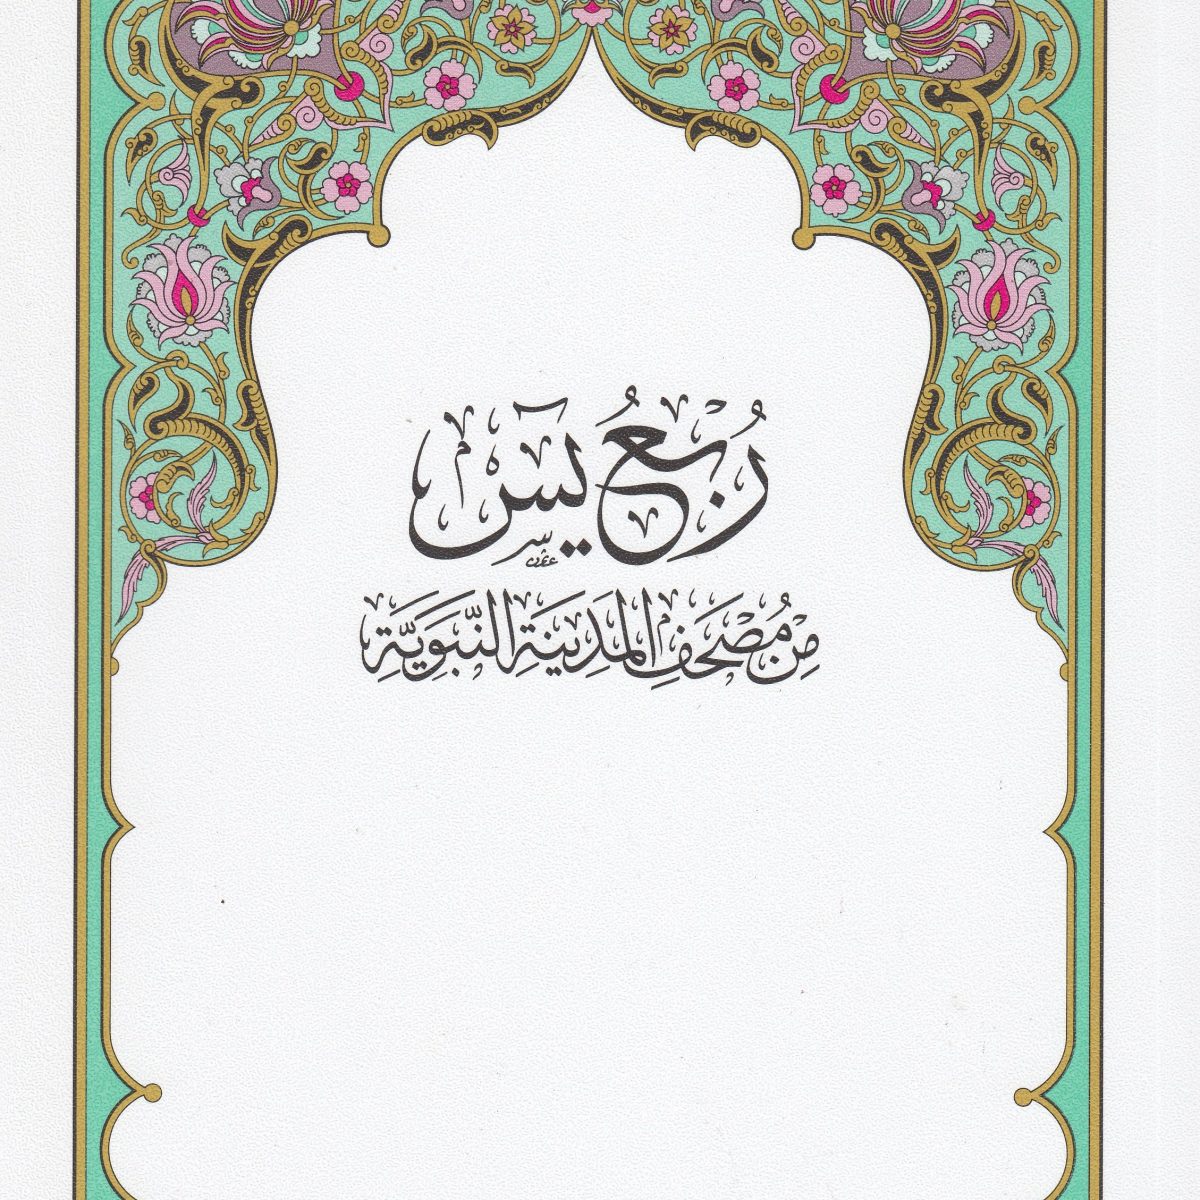 رُبُعُ يسٓ
مِنْ مُصْحَفِ المَدِينَةِ النَّبَوِيَّةِ